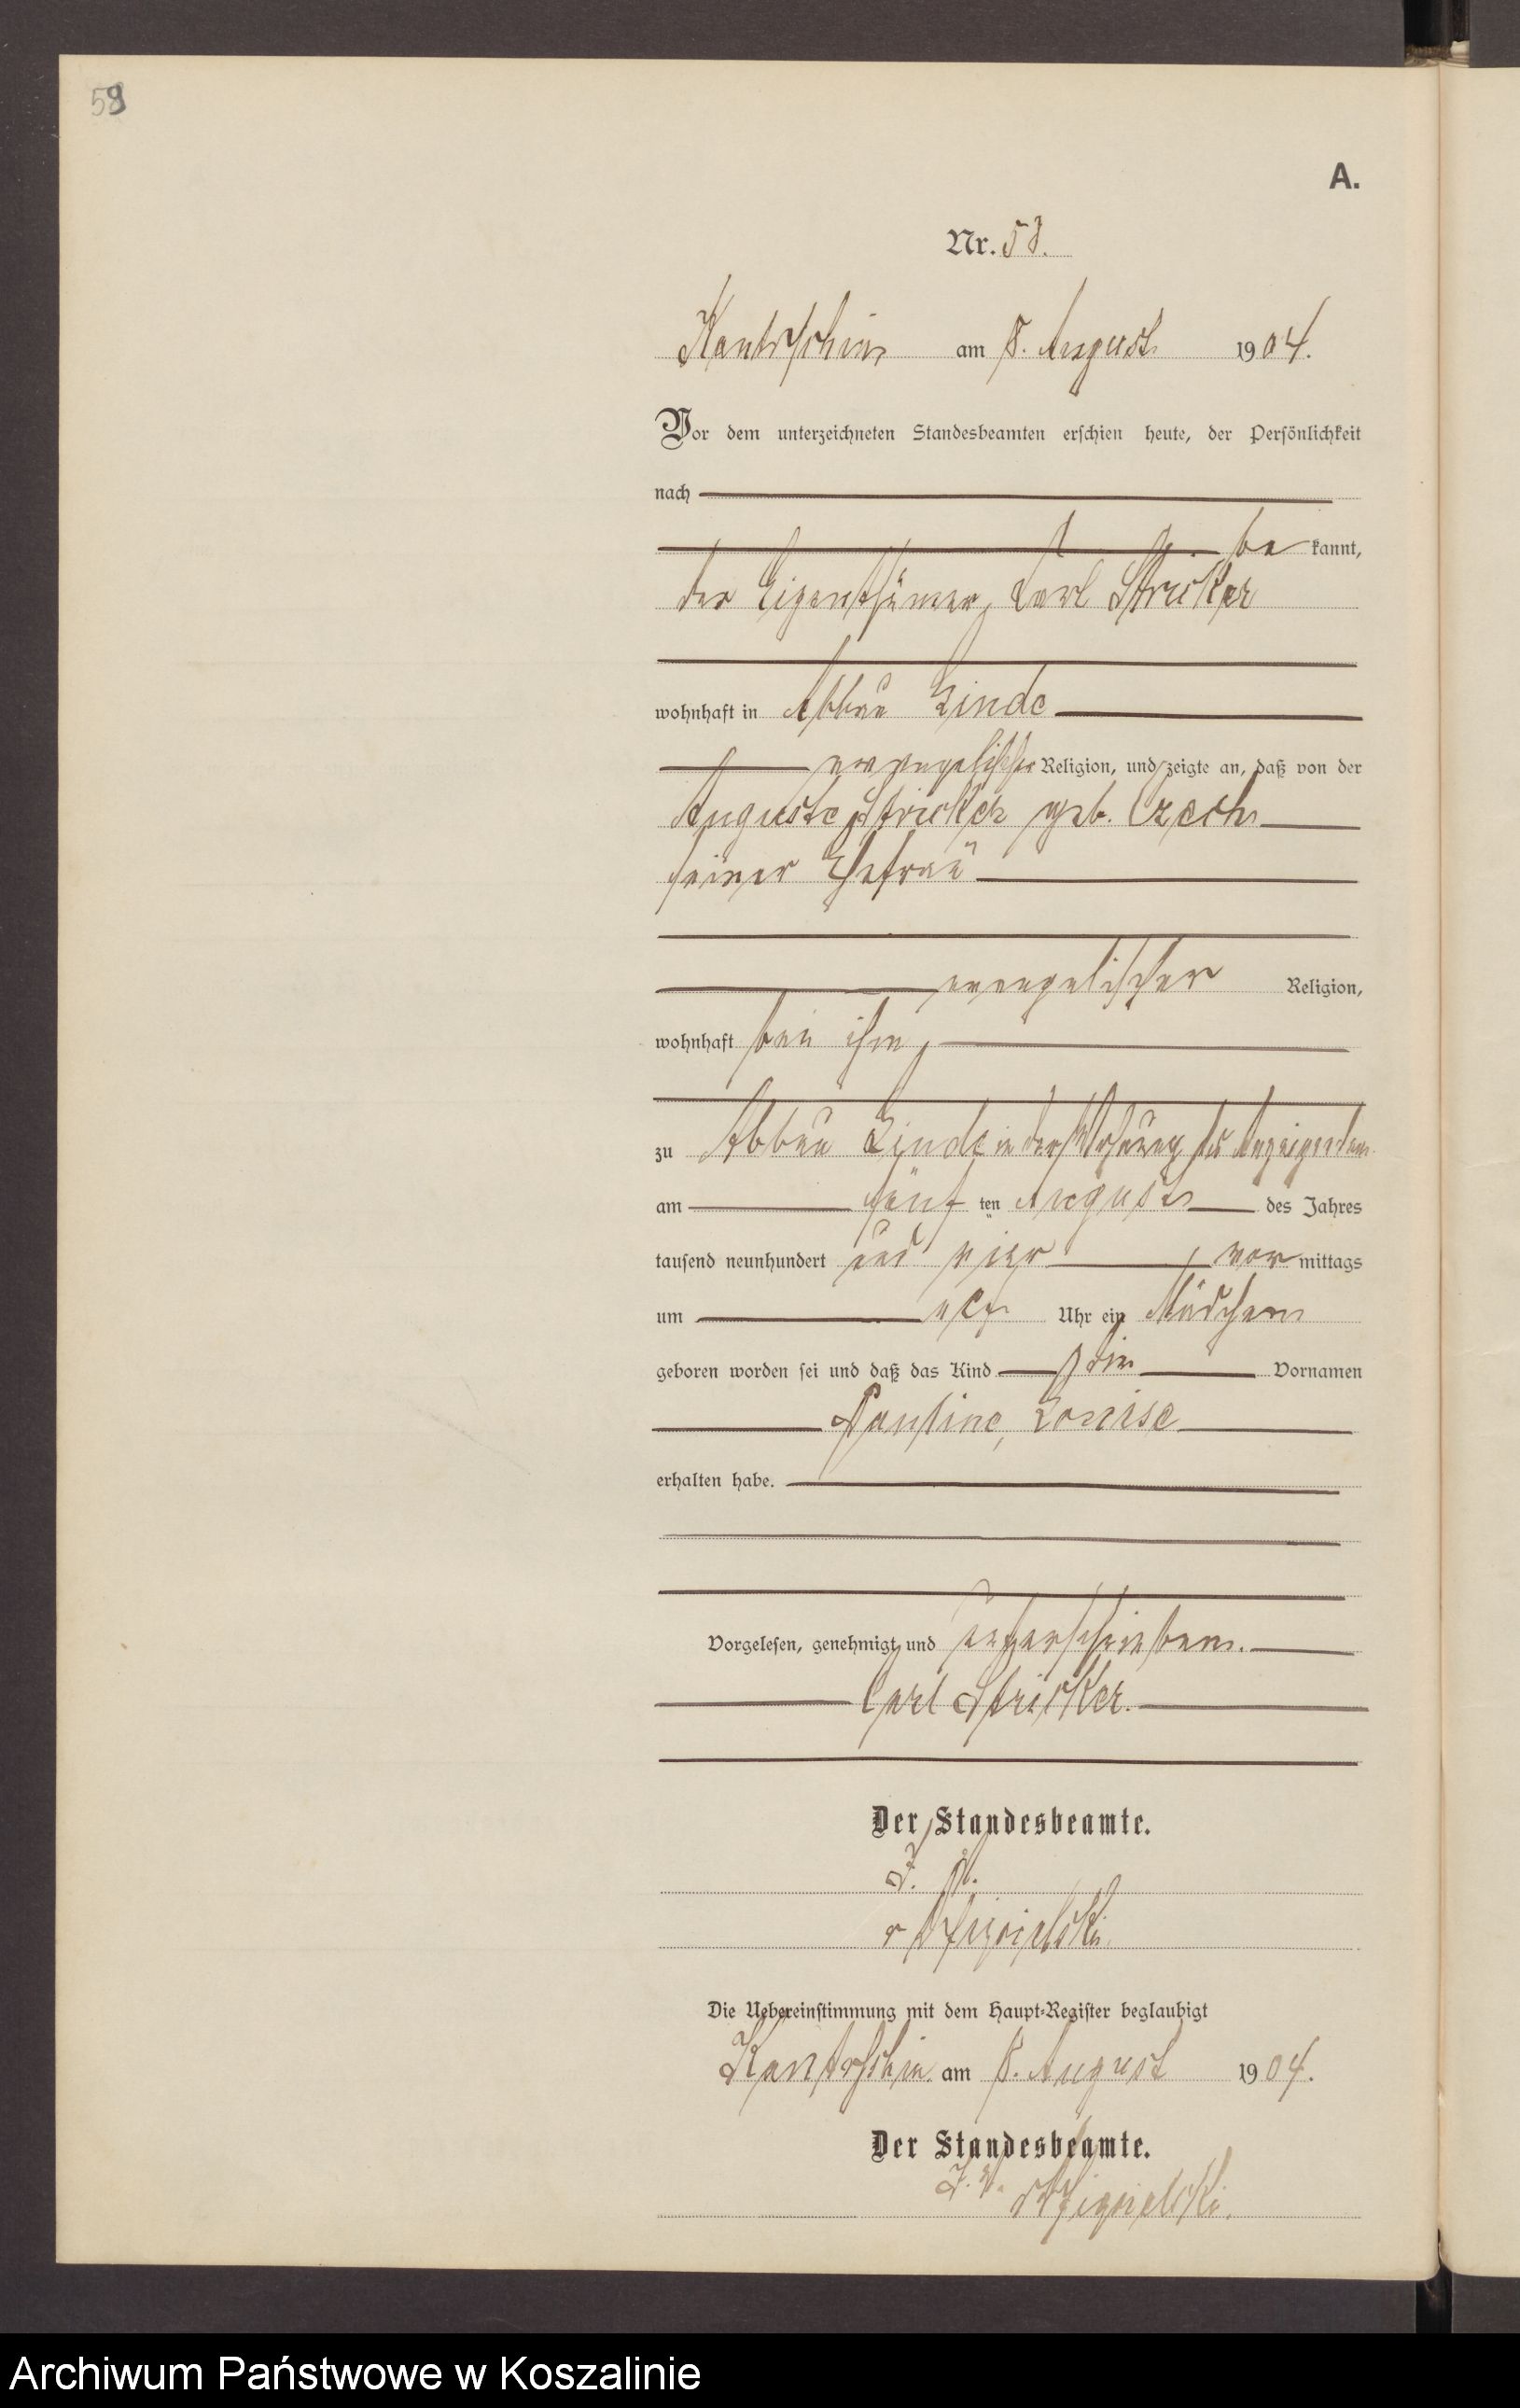 59
A.
Nr. 58.
Kantrschin am 8. August 1904.
Vor dem unterzeichneten Standesbeamten erschien heute, der Persönlichkeit
nach
be kannt,
der Eigenthümer, Carl Stricker
wohnhaft in Abbau Linde
evangelischer Religion, und zeigte an, daß von der
Auguste Stricker geb. Czech
seiner Ehefrau
evangelischer Religion,
wohnhaft bei ihm,
zu Abbau Linde in der Wohnung des Anzeigenden
am fünf ten August des Jahres
tausend neunhundert und vier, vor mittags
um elf Uhr ein Mädchen
geboren worden sei und daß das Kind die Vornamen
Pauline, Louise
erhalten habe.
Vorgelesen, genehmigt und unterschrieben.
Carl Stricker.
Der Standesbeamte.
I. V.
Die Uebereinstimmung mit dem Haupt-Register beglaubigt
Kantrschin am 8. August 1904.
Der Standesbeamte.
I. V.
Archiwum Państwowe w Koszalinie